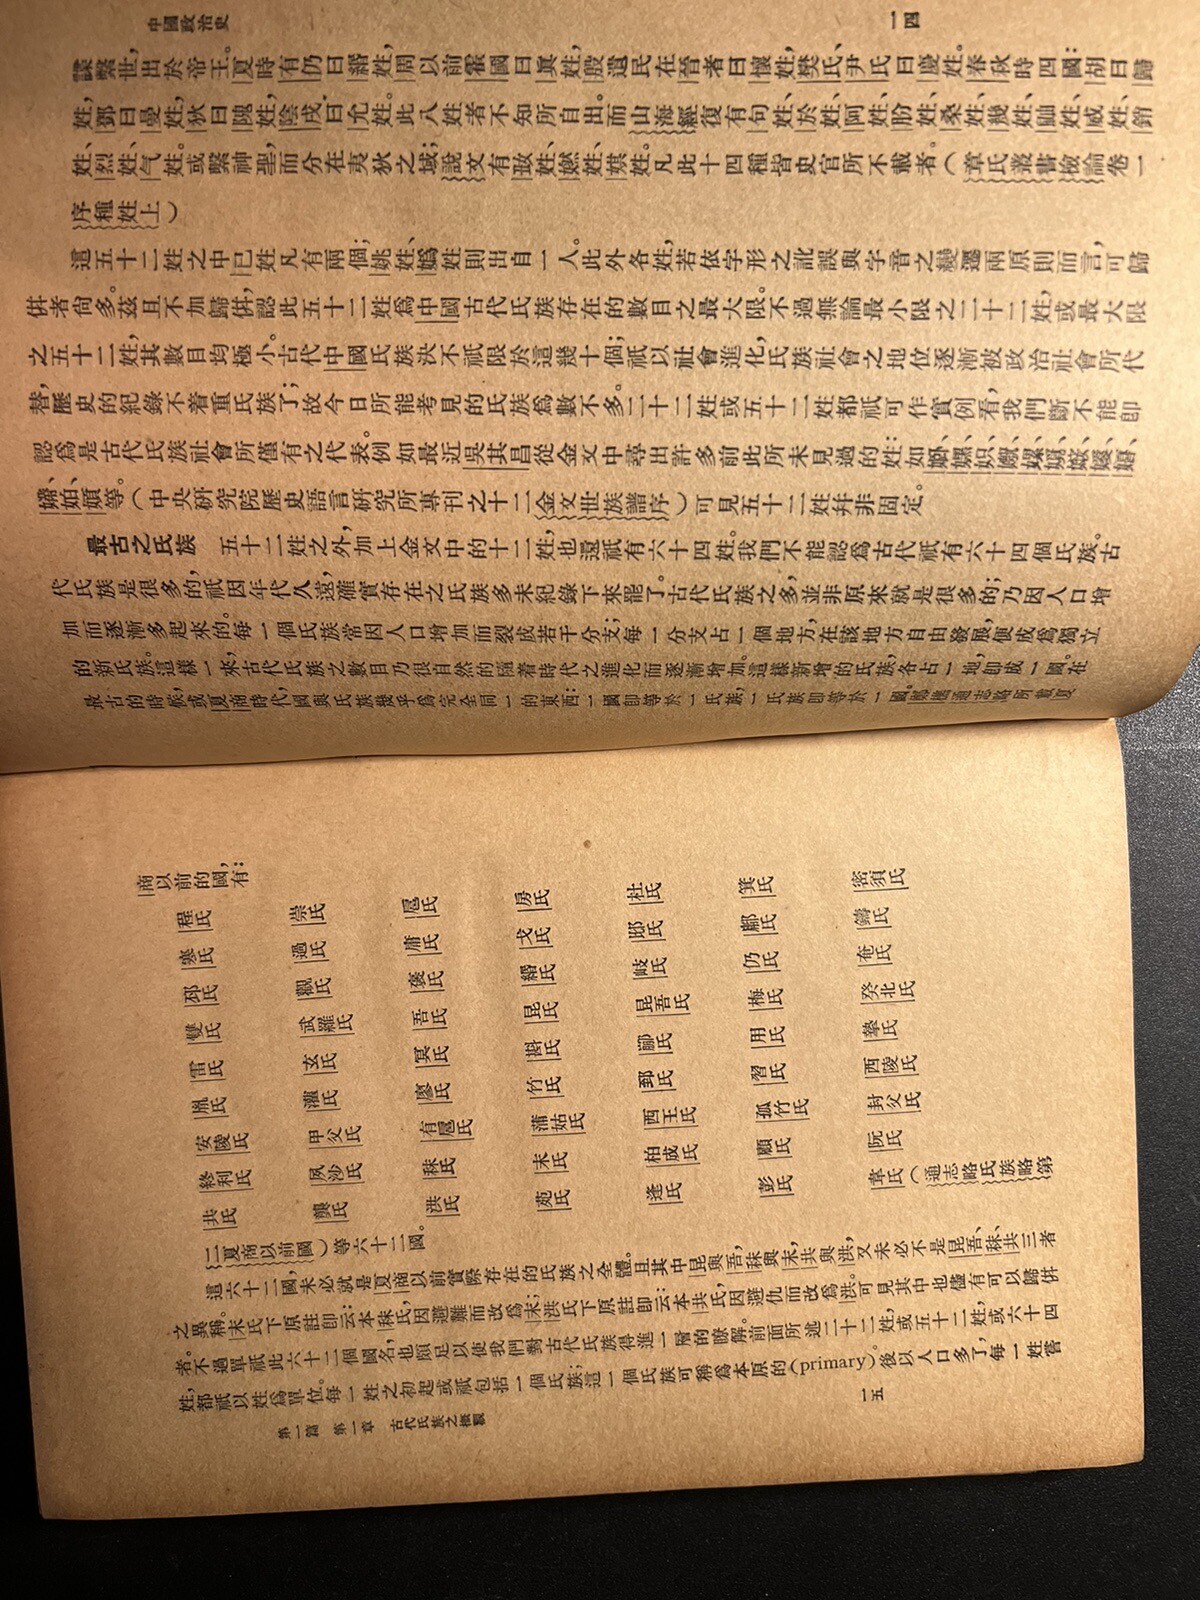 中國政治史
一四
諜繫世，出於帝王。夏時有仍曰緡姓，周以前霍國曰眞姓，殷遺民在晉者曰懷姓，樊氏、尹氏曰慶姓。春秋時四國：胡曰歸
姓，鄧曰曼姓，狄曰隗姓，陰戎曰允姓。此八姓者不知所自出。而山海經復有句姓、於姓、阿姓、肦姓、桑姓、幾姓、姓、威姓、銷
姓、烈姓、气姓。或繫神聖，而分在夷狄之域；說文有姓、嬿姓、娸姓。凡此十四種皆史官所不載者。（章氏叢書檢論卷一
序種姓上）
這五十二姓之中，巳姓凡有兩個；姚姓、嬀姓則出自一人。此外各姓，若依字形之訛誤與字音之變遷兩原則而言，可歸
併者尙多。茲且不加歸併，認此五十二姓爲中國古代氏族存在的數目之最大限。不過無論最小限之二十二姓，或最大限
之五十二姓，其數目均極小。古代中國氏族決不祇限於這幾十個；祇以社會進化，氏族社會之地位逐漸被政治社會所代
替，歷史的紀錄不着重氏族了；故今日所能考見的氏族爲數不多。二十二姓或五十二姓都祇可作實例看，我們斷不能卽
認爲是古代氏族社會所僅有之代表。例如最近吳其昌從金文中尋出許多前此所未見過的姓：如
等。（中央硏究院歷史語言硏究所專刊之十二金文世族譜序）可見五十二姓幷非固定。
最古之氏族　五十二姓之外，加上金文中的十二姓，也還祇有六十四姓。我們不能認爲古代祇有六十四個氏族。古
代氏族是很多的，祇因年代久遠，確實存在之氏族多未紀錄下來罷了。古代氏族之多，並非原來就是很多的；乃因人口增
加而逐漸多起來的。每一個氏族常因人口增加而裂成若干分支；每一分支占一個地方，在該地方自由發展，便成爲獨立
的新氏族。這樣一來，古代氏族之數目乃很自然的隨着時代之進化而逐漸增加。這樣新增的氏族，各占一地，卽成一國。在
最古的時候，或夏商時代，國與氏族幾乎爲完全同一的東西：一國卽等於一氏族，一氏族卽等於一國。鄭樵通志略所載夏
商以前的國，有：
程氏　崇氏　扈氏　房氏　杜氏　箕氏　密須氏
塞氏　過氏　庸氏　戈氏　邸氏　氏　鑄氏
邳氏　觀氏　褒氏　繒氏　岐氏　仍氏　奄氏
雙氏　武羅氏　吾氏　昆氏　昆吾氏　梅氏　癸北氏
雷氏　玄氏　冥氏　斟氏　鄘氏　用氏　摯氏
胤氏　灌氏　廖氏　竹氏　郅氏　習氏　西陵氏
安陵氏　甲父氏　有扈氏　蒲姑氏　西王氏　孤竹氏　封父氏
終利氏　夙沙氏　秣氏　末氏　柏成氏　顧氏　阮氏
共氏　龔氏　洪氏　苑氏　逄氏　彭氏　韋氏（通志略氏族略第
二夏商以前國）等六十二國。
這六十二國，未必就是夏商以前實際存在的氏族之全體。且其中昆與吾，秣與末，共與洪，又未必不是昆吾、秣、共三者
之異稱。末氏下原註卽云：本秣氏，因避難而改爲末；洪氏下原註卽云：本共氏，因避仇而改爲洪。可見其中也儘有可以歸併
者。不過單祇此六十二個國名，也頗足以使我們對古代氏族得進一層的瞭解。前面所述二十二姓，或五十二姓，或六十四
姓，都祇以姓爲單位。每一姓之初起，或祇包括一個氏族；這一個氏族可稱爲本原的(primary)。後以人口多了，每一姓嘗
第一篇　第一章　古代氏族之概觀
一五